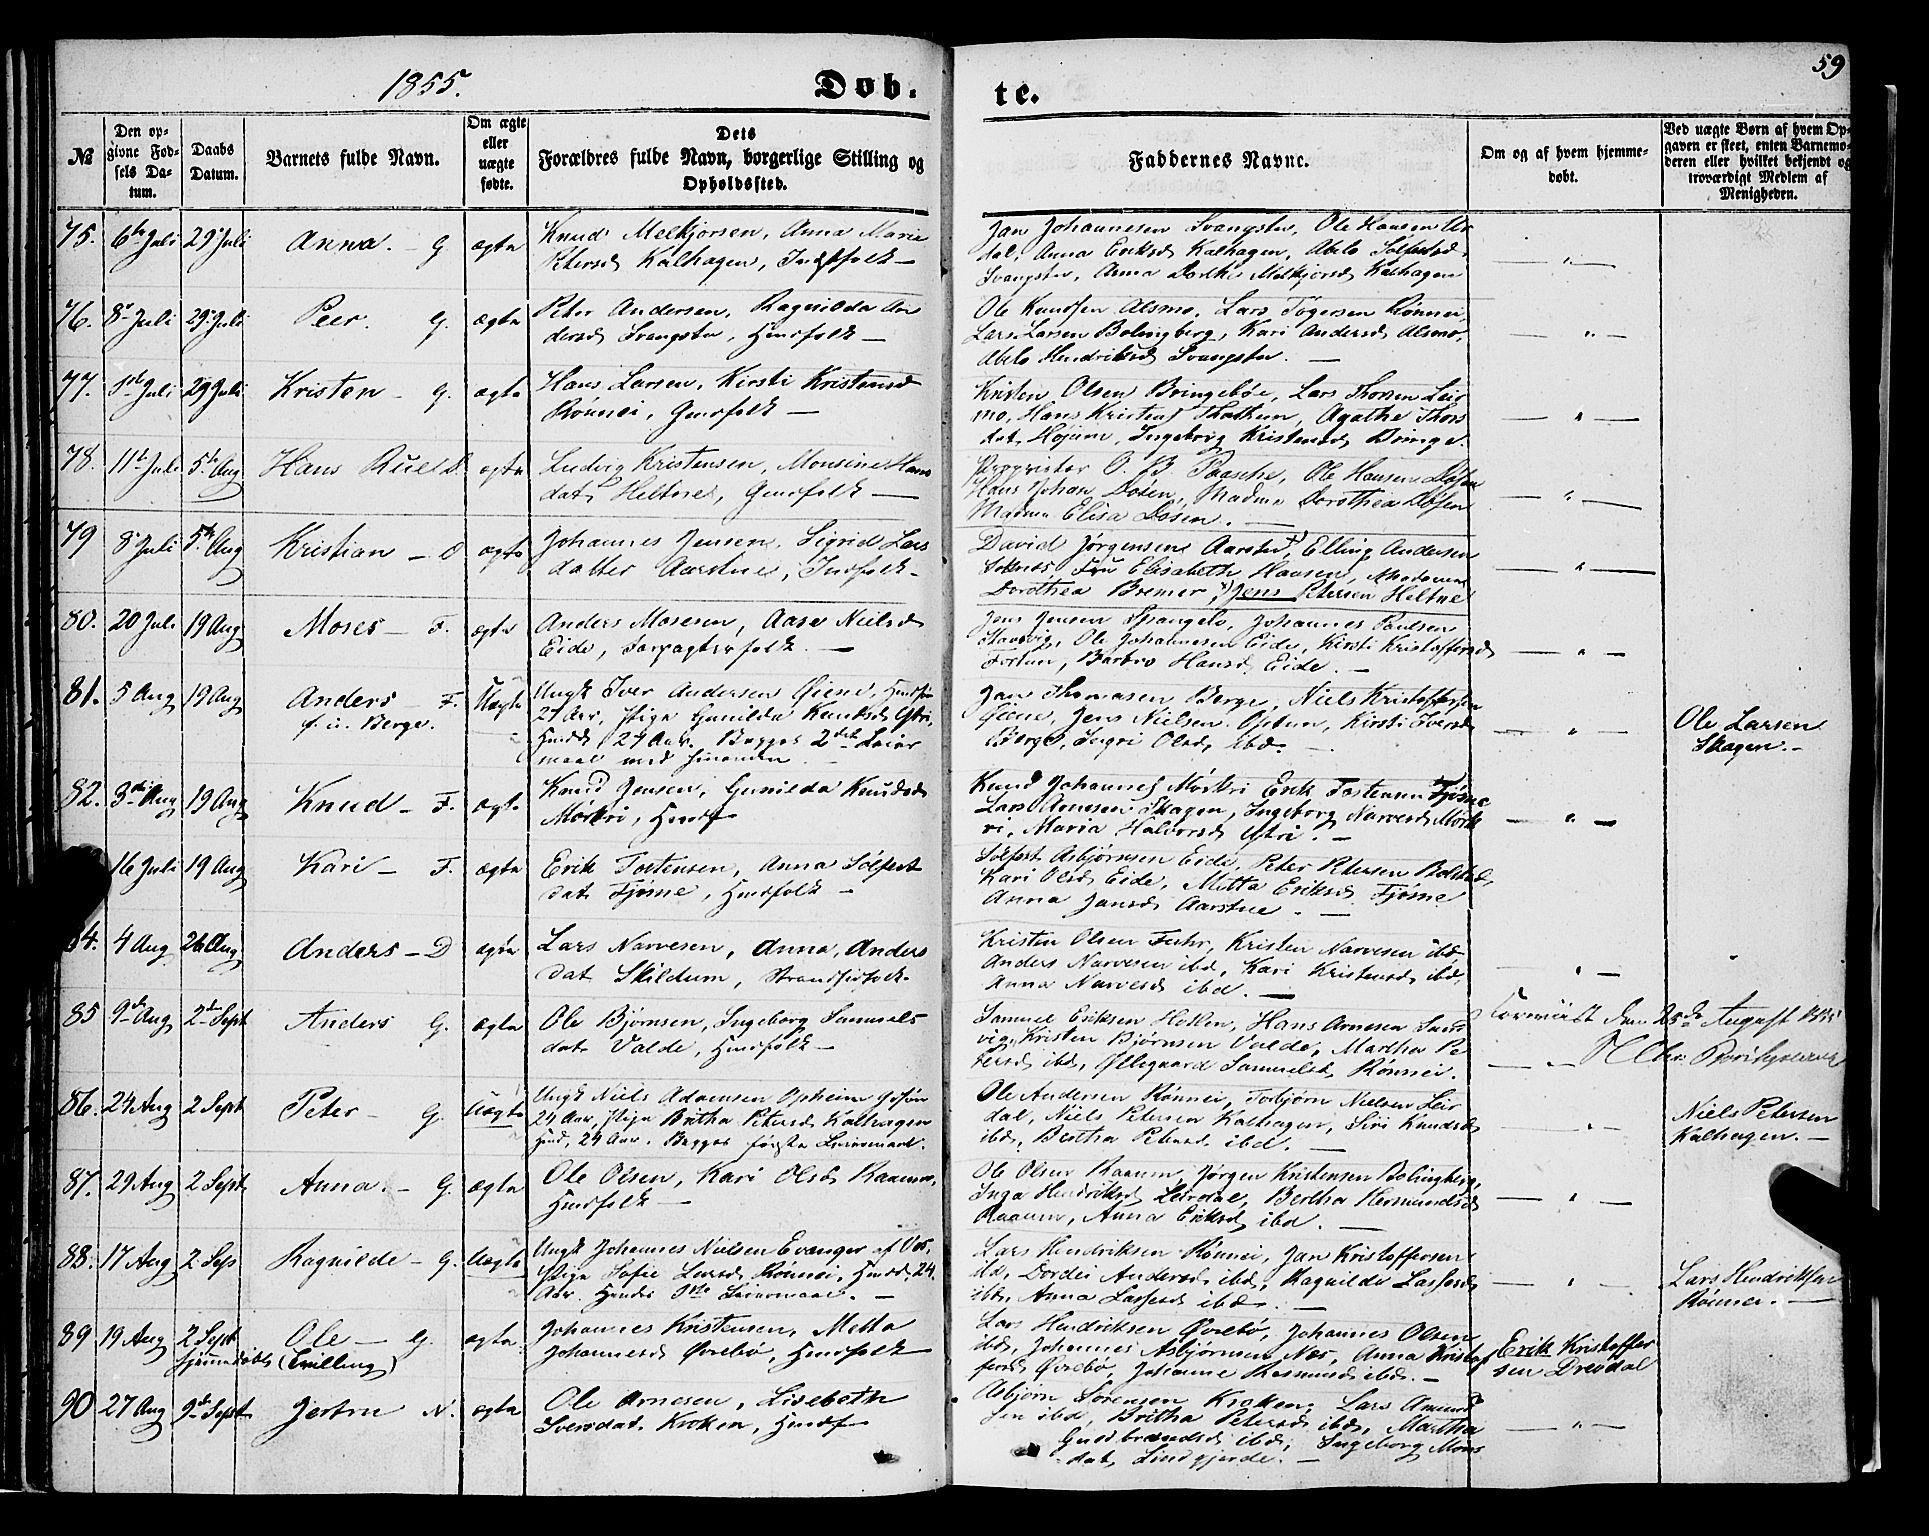 1855.
Døb.
te.
59
№
Den op-
givne Fød-
sels Da-
tum.
Daabs
Datum.
Barnets fulde Navn.
Om ægte
eller
uægte
fødte.
Dets
Forældres fulde Navn, borgerlige Stilling og
Opholdssted.
Faddernes Navne.
Om og af hvem hjemme-
døbt.
Ved uægte Børn af hvem Op-
gaven er skeet, enten Barnemo-
deren eller hvilket bekjendt og
troværdigt Medlem af
Menigheden.
75. 6te Juli 29 Juli Anna. – G ægte
Knud Melkjorsen, Anna Marie
Petersd. Kalhagen, Indfolk –
Jan Johannesen Svangstu, Ole Hansen
dal, Anna Eriksd. Kalhagen, Abelo Solfestd.
Svangstu, Anna Dorthe Melkjorsd. Kalhagen
76. 8de Juli 29 Juli Peer. G. ægte
Peter Andersen, Ragnilda An
dersd. Svangstu, Huusfolk –
Ole Knudsen Alsmo, Lars Tøgersen Rønnei,
Lars Larsen Bolingberg, Kari Andersd. Alsmo,
Abelo Hendriksd. Svangstu. –
77. 1ste Juli 29 Juli Kristen – G. ægte
Hans Larsen, Kirsti Kristensd.
Rønnei, Gmdfolk –
Kristen Olsen Bringebøe, Lars Thorsen Leir
mo, Hans Kristens. Agathe Thors
dat. Højum, Ingeborg Kristensd. Bringe
78. 11te Juli 5te Aug Hans Rue D. ægte
Ludvig Kristensen, Monsine Hans
dat. Heltne, Gmdfolk –
Proprietær O. B. Paasche, Ole Hansen Døsen
Hans Johan Døsen, Madme Dorothea Døsen
Madme Elisa Døsen. –
79 8de Juli 5te Aug Kristian – D ægte
Johannes Jensen, Sigrid Lars
datter Aarstue, Indfolk –
David Jørgensen Aarstu, Elling Andersen
Fru Elisabeth Hansen, Madame
Dorothea Bremer, Jens Petersen Heltne
80. 20 Juli 19 Aug Moses – F. ægte
Anders Mosesen, Aase Nielsd.
Eide, Forpagterfolk –
Jens Jensen Johannes Paulsen
Ole Johannesen Eide, Kirsti Kristoffersd.
Fortun, Barbro Hansd. Eide. –
81. 5 Aug 19 Aug Anders – F. Uægte
f. u. Berge.
Ungk Iver Andersen Øiene,
27 Aar, Pige Gunilda Knudsd. Ytri,
27 Aar. Begges 2det Leier
maal med hinanden –
Jan Thomasen Berge, Niels Kristoffersen
Øiene, Jens Nielsen Optun, Kirsti Iversd.
Berge, Ingri Olsd. ibd. –
Ole Larsen
Skagen. –
82. 3die Aug 19 Aug Knud – F. ægte
Knud Jensen, Gunilda Knudsd.
Mørkri, Huusf
Knud Johannes. Mørkri Erik Tostensen Fjøsne
Lars Arnesen Skagen, Ingeborg Narvesd. Mørk
ri, Maria Halvorsd. Ytri. –
16 Juli 19 Aug Kari – F. ægte
Erik Tostensen, Anna Solfest
dat Fjøsne, Huusfolk –
Solfest Asbjørnsen Eide, Peter Petersen Bolstad,
Kari Olsd. Eide, Mitta Eriksd. Fjøsne
Anna Jansd. Aarstue. –
84. 4 Aug 26 Aug Anders – D ægte
Lars Narvesen, Anna Anders
dat Skildum, Strandsidfolk.
Kristen Olsen Fuhr, Kristen Narvesen ibd.
Anders Narvesen ibd, Kari Kristensd. ibd.
Anna Narvesd. ibd. –
85 9de Aug 2den Sept Anders G. ægte
Ole Bjørnsen, Ingeborg Samuels
dat. Valde, Huusfolk –
Samuel Eriksen Hollen, Hans Arnesen Sand
vig, Kristen Bjørnsen Valde, Martha Pe
tersd. ibd, Øllegaard Samuelsd. Rønnei.
den 25de August 1855
86. 24 Aug 2 Sept Peter – G. Uægte
Ungk Niels Adamsen Opheim
24 Aar, Pige Britha Petersd. Kalhagen
24 Aar. Begges første Leiermaal.
Ole Andersen Rønnei, Torbjørn Nielsen Leir
dal, Niels Petersen Kalhagen, Siri Knudsd.
ibd, Bertha Petersd. ibd. –
Niels Petersen
Kalhagen. –
87. 29 Aug 2 Sept Anna. – G. ægte
Ole Olsen, Kari Olsd. Raaum,
Huusfolk –
Ole Olsen Raaum, Jørgen Kristensen Bolingberg,
Inga Hendriksd. Leirdal, Bertha Rasmundsd.
Raaum, Anna Eriksd. ibd. –
88. 17 Aug 2 Sep Ragnilde – G. Uægte
Ungk Johannes Nielsen Evanger af Vos,
Pige Sofie Larsd. Rønnei, 24
Aar. Hendes Leiermaal. –
Lars Hendriksen Rønnei, Jan Kristoffersen
ibd, Dordei Andersd. ibd, Ragnilde Lassesd.
ibd, Anna Lassesd. ibd. –
Lars Hendriksen
Rønnei. –
89 19 Aug 2 Sept Ole – G. ægte.
Hjemmedøbt (Tvilling)
Johannes Kristensen, Metta
Johannesd. Øvrebø, Huusfolk
Lars Hendriksen Øvrebø, Johannes Olsen
ibd, Johannes Asbjørnsen Næs, Anna Kristof
fersd. Øvrebø, Johanne Rasmusd. ibd. –
Erik Kristoffer
sen Dresdal
90 27 Aug 9de Sept Jertru N. ægte
Ole Arnesen, Lisebeth
Iversdat. Kroken, Huusf
Asbjørn Sørensen Kroken, Lars Amund
sen ibd, Britha Petersd. ibd, Martha
Gudbrandsd. ibd, Ingeborg Mons
dat. Lindgjerde. –